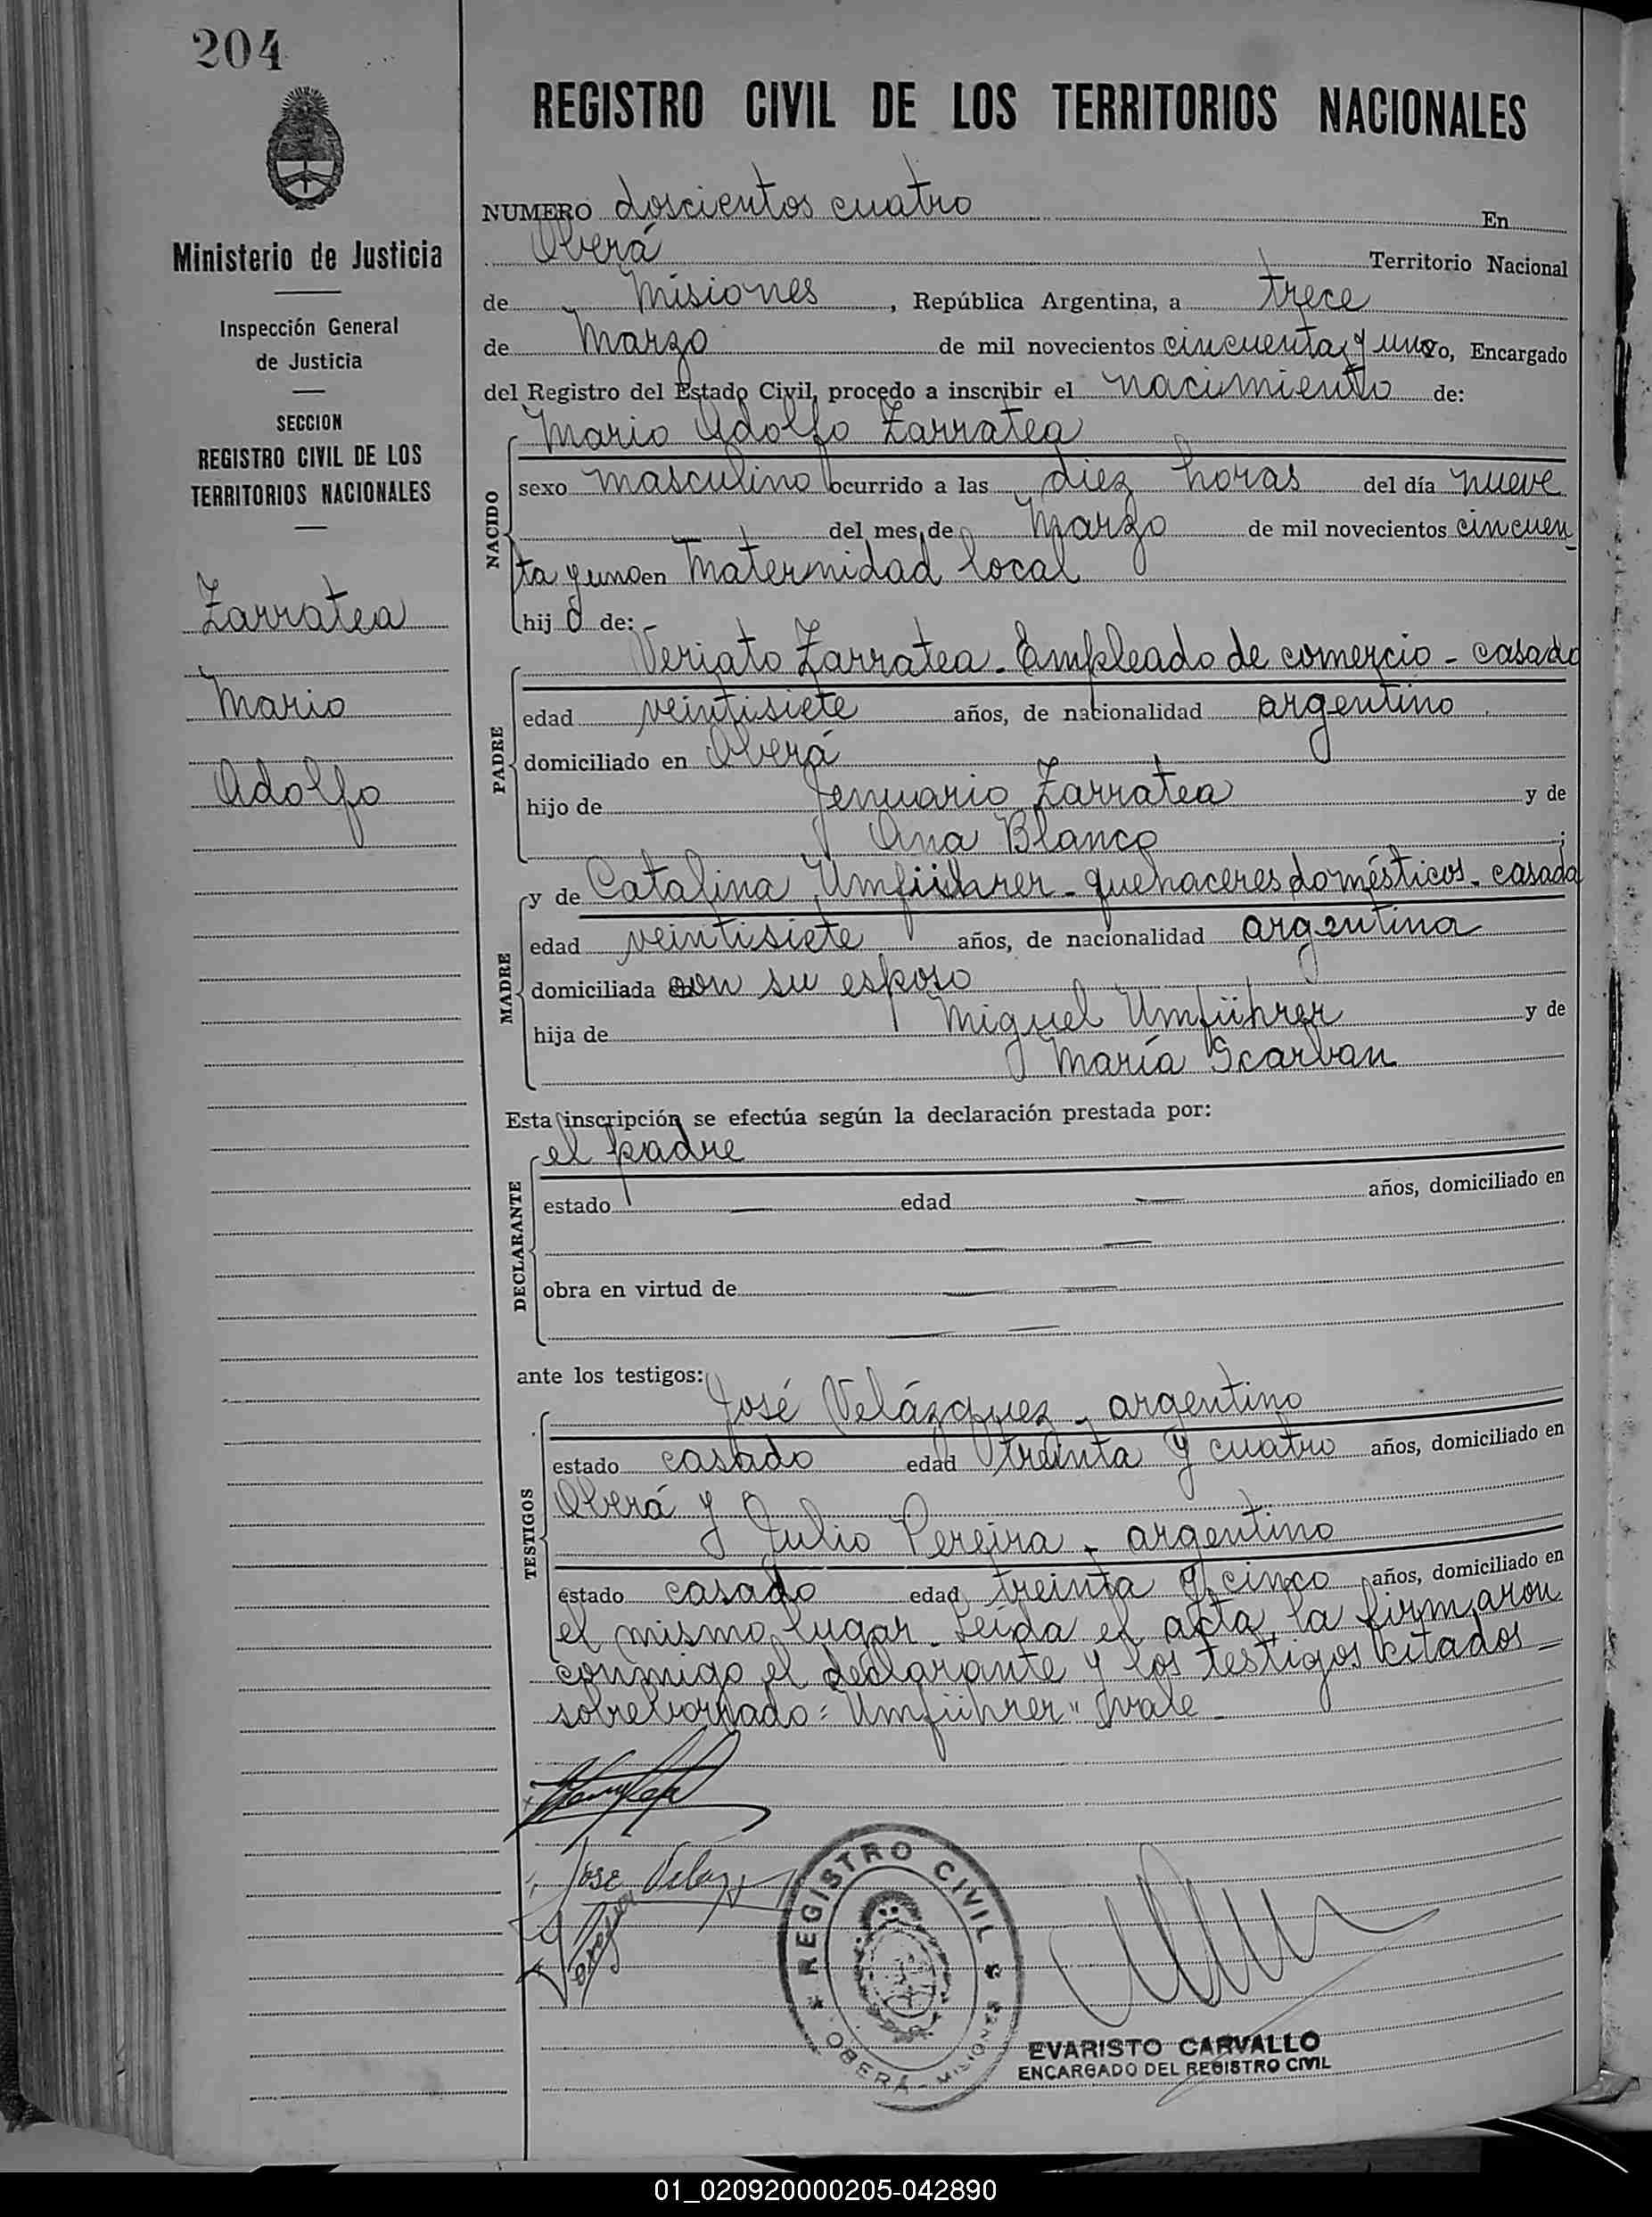 204
Ministerio de Justicia
Inspección General
de Justicia
SECCION
REGISTRO CIVIL DE LOS
TERRITORIOS NACIONALES
Zarratea
Mario
Adolfo
REGISTRO CIVIL DE LOS TERRITORIOS NACIONALES
NUMERO doscientos cuatro En
Oberá Territorio Nacional
de Misiones, República Argentina, a trece
de Marzo de mil novecientos cincuenta y uno yo, Encargado
del Registro del Estado Civil, procedo a inscribir el nacimiento de:
NACIDO
Mario Adolfo Zarratea
sexo masculino ocurrido a las diez horas del día nueve
del mes de Marzo de mil novecientos cincuen-
ta y uno en Maternidad local
hijo de:
PADRE
Zarratea - Empleado de comercio - casado
edad veintisiete años, de nacionalidad argentino
domiciliado en Oberá
hijo de Jenuario Zarratea y de
Ana Blanco ;
MADRE
y de Catalina Umführer - quehaceres domésticos - casada
edad veintisiete años, de nacionalidad argentina
domiciliada con su esposo
hija de Miguel Umführer y de
María Scarvan
Esta inscripción se efectúa según la declaración prestada por:
DECLARANTE
el padre
estado — edad — años, domiciliado en
— —
obra en virtud de — —
— —
ante los testigos:
TESTIGOS
José Velázquez - argentino
estado casado edad treinta y cuatro años, domiciliado en
Oberá y
Julio Pereira - argentino
estado casado edad treinta y cinco años, domiciliado en
el mismo lugar. Leída el acta, la firmaron
conmigo el declarante y los testigos citados =
sobreborrado: "Umführer" vale -
Jose Velazq
REGISTRO CIVIL
OBERÁ - MISIONES
EVARISTO CARVALLO
ENCARGADO DEL REGISTRO CIVIL
01_020920000205-042890